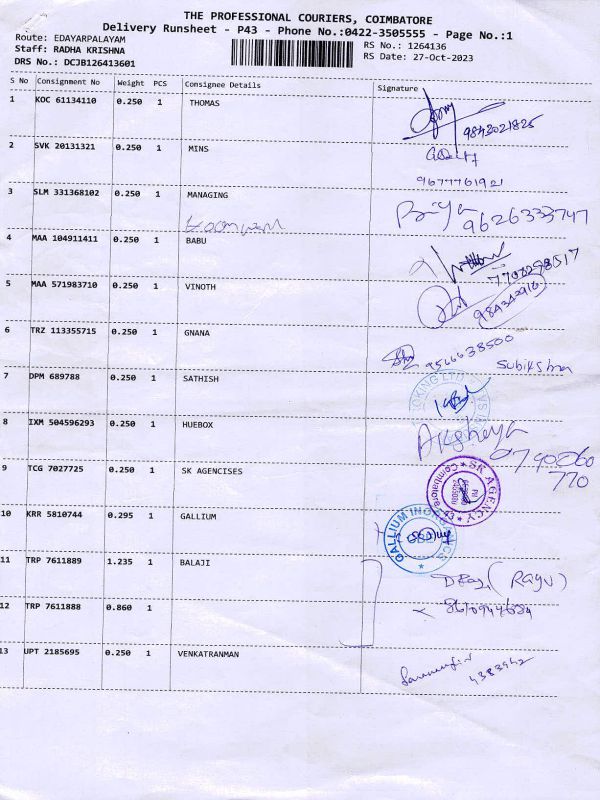 THE PROFESSIONAL COURIERS, COIMBATORE
Delivery Runsheet - P43 - Phone No.:0422-3505555 - Page No.:1
Route: EDAYARPALAYAM
Staff: RADHA KRISHNA
RS No.: 1264136
DRS No.: DCJB126413601
RS Date: 27-Oct-2023
S No Consignment No Weight PCS Consignee Details Signature
1 KOC 61134110 0.250 1 THOMAS
9843021825
2 SVK 20131321 0.250 1 MINS
9677761921
3 SLM 331368102 0.250 1 MANAGING
Priya 9626333747
4 MAA 104911411 0.250 1 BABU
7708298517
5 MAA 571983710 0.250 1 VINOTH
6 TRZ 113355715 0.250 1 GNANA
9566638500 Subiksha
7 DPM 689788 0.250 1 SATHISH
8 IXM 504596293 0.250 1 HUEBOX
Akshaya
9790260
770
9 TCG 7027725 0.250 1 SK AGENCISES
SK AGENCY Coimbatore
10 KRR 5810744 0.295 1 GALLIUM
GALLIUM INORGANICS
11 TRP 7611889 1.235 1 BALAJI
(Ragu)
12 TRP 7611888 0.860 1
13 UPT 2185695 0.250 1 VENKATRANMAN
4383942